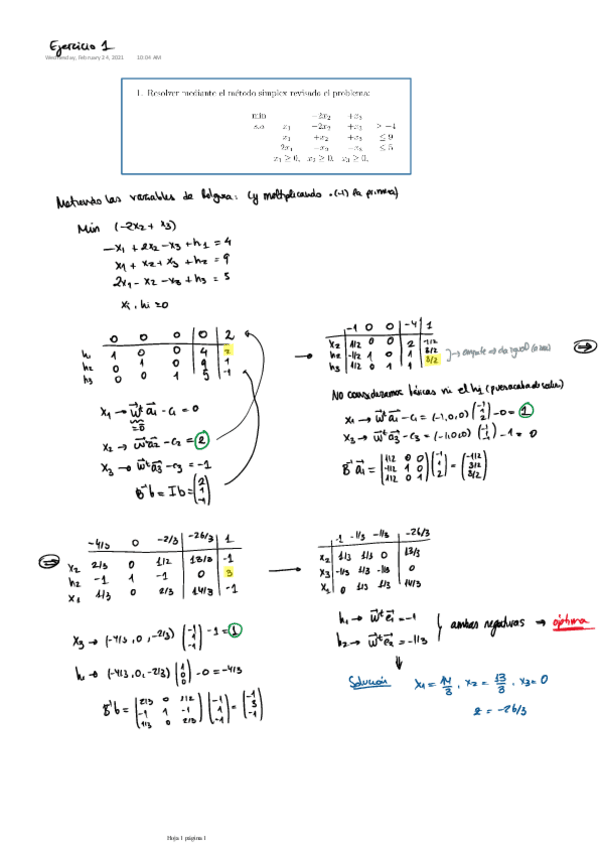 Ejercicio 1
Wednesday, February 24, 2021 10:04 AM
1. Resolver mediante el método simplex revisado el problema:
min −2x₂ +x₃
s.a x₁ −2x₂ +x₃ ≥ −4
x₁ +x₂ +x₃ ≤ 9
2x₁ −x₂ −x₃ ≤ 5
x₁ ≥ 0, x₂ ≥ 0, x₃ ≥ 0,
Metiendo las variables de holgura: (y multiplicando ·(-1) la primera)
Min (-2x₂ + x₃)
-x₁ + 2x₂ - x₃ + h₁ = 4
x₁ + x₂ + x₃ + h₂ = 9
2x₁ - x₂ - x₃ + h₃ = 5
xᵢ, hi ≥0
0 0 0 0 2
h₁ 1 0 0 4 2
h₂ 0 1 0 9 1
h₃ 0 0 1 5 -1
x₁ → w̄ᵗ ā₁ - c₁ = 0
x₂ → w̄ᵗ ā₂ - c₂ = 2
x₃ → w̄ᵗ ā₃ - c₃ = -1
B⁻¹b = Ib = (2 1 -1)
-1 0 0 -4 1
x₂ 1/2 0 0 2 -1/2
h₂ -1/2 1 0 3/2
h₃ 1/2 0 1 3/2
No consideramos básicas ni el h₁
x₁ → w̄ᵗ ā₁ - c₁ = (-1,0,0) (-1 1 2) - 0 = 1
x₃ → w̄ᵗ ā₃ - c₃ = (-1,0,0) - 1 = 0
B⁻¹ ā₁ = (1/2 0 0 -1/2 1 0 1/2 0 1) (-1 1 2) = (-1/2 3/2 3/2)
-4/3 0 -2/3 -26/3 1
x₂ 2/3 0 1/2 13/3 -1
h₂ -1 1 -1 0 3
x₁ 1/3 0 2/3 14/3 -1
x₃ → (-4/3, 0, -2/3) (-1 1 -1) - 1 = 1
h₁ → (-4/3, 0, -2/3) (1 0 0) - 0 = -4/3
B⁻¹b = (2/3 0 1/2 -1 1 -1 1/3 0 2/3) (-1 1 -1) = (-1 3 -1)
-1 -1/3 -1/3 -26/3
x₂ 1/3 1/3 0 13/3
x₃ -1/3 1/3 -1/3 0
x₁ 0 1/3 1/3 14/3
h₁ → w̄ᵗ ē₁ = -1
h₂ → w̄ᵗ ē₂ = -1/3
ambas negativas → óptima
Solución x₁ = 14/3, x₂ = 13/3, x₃ = 0
z = -26/3
Hoja 1 página 1